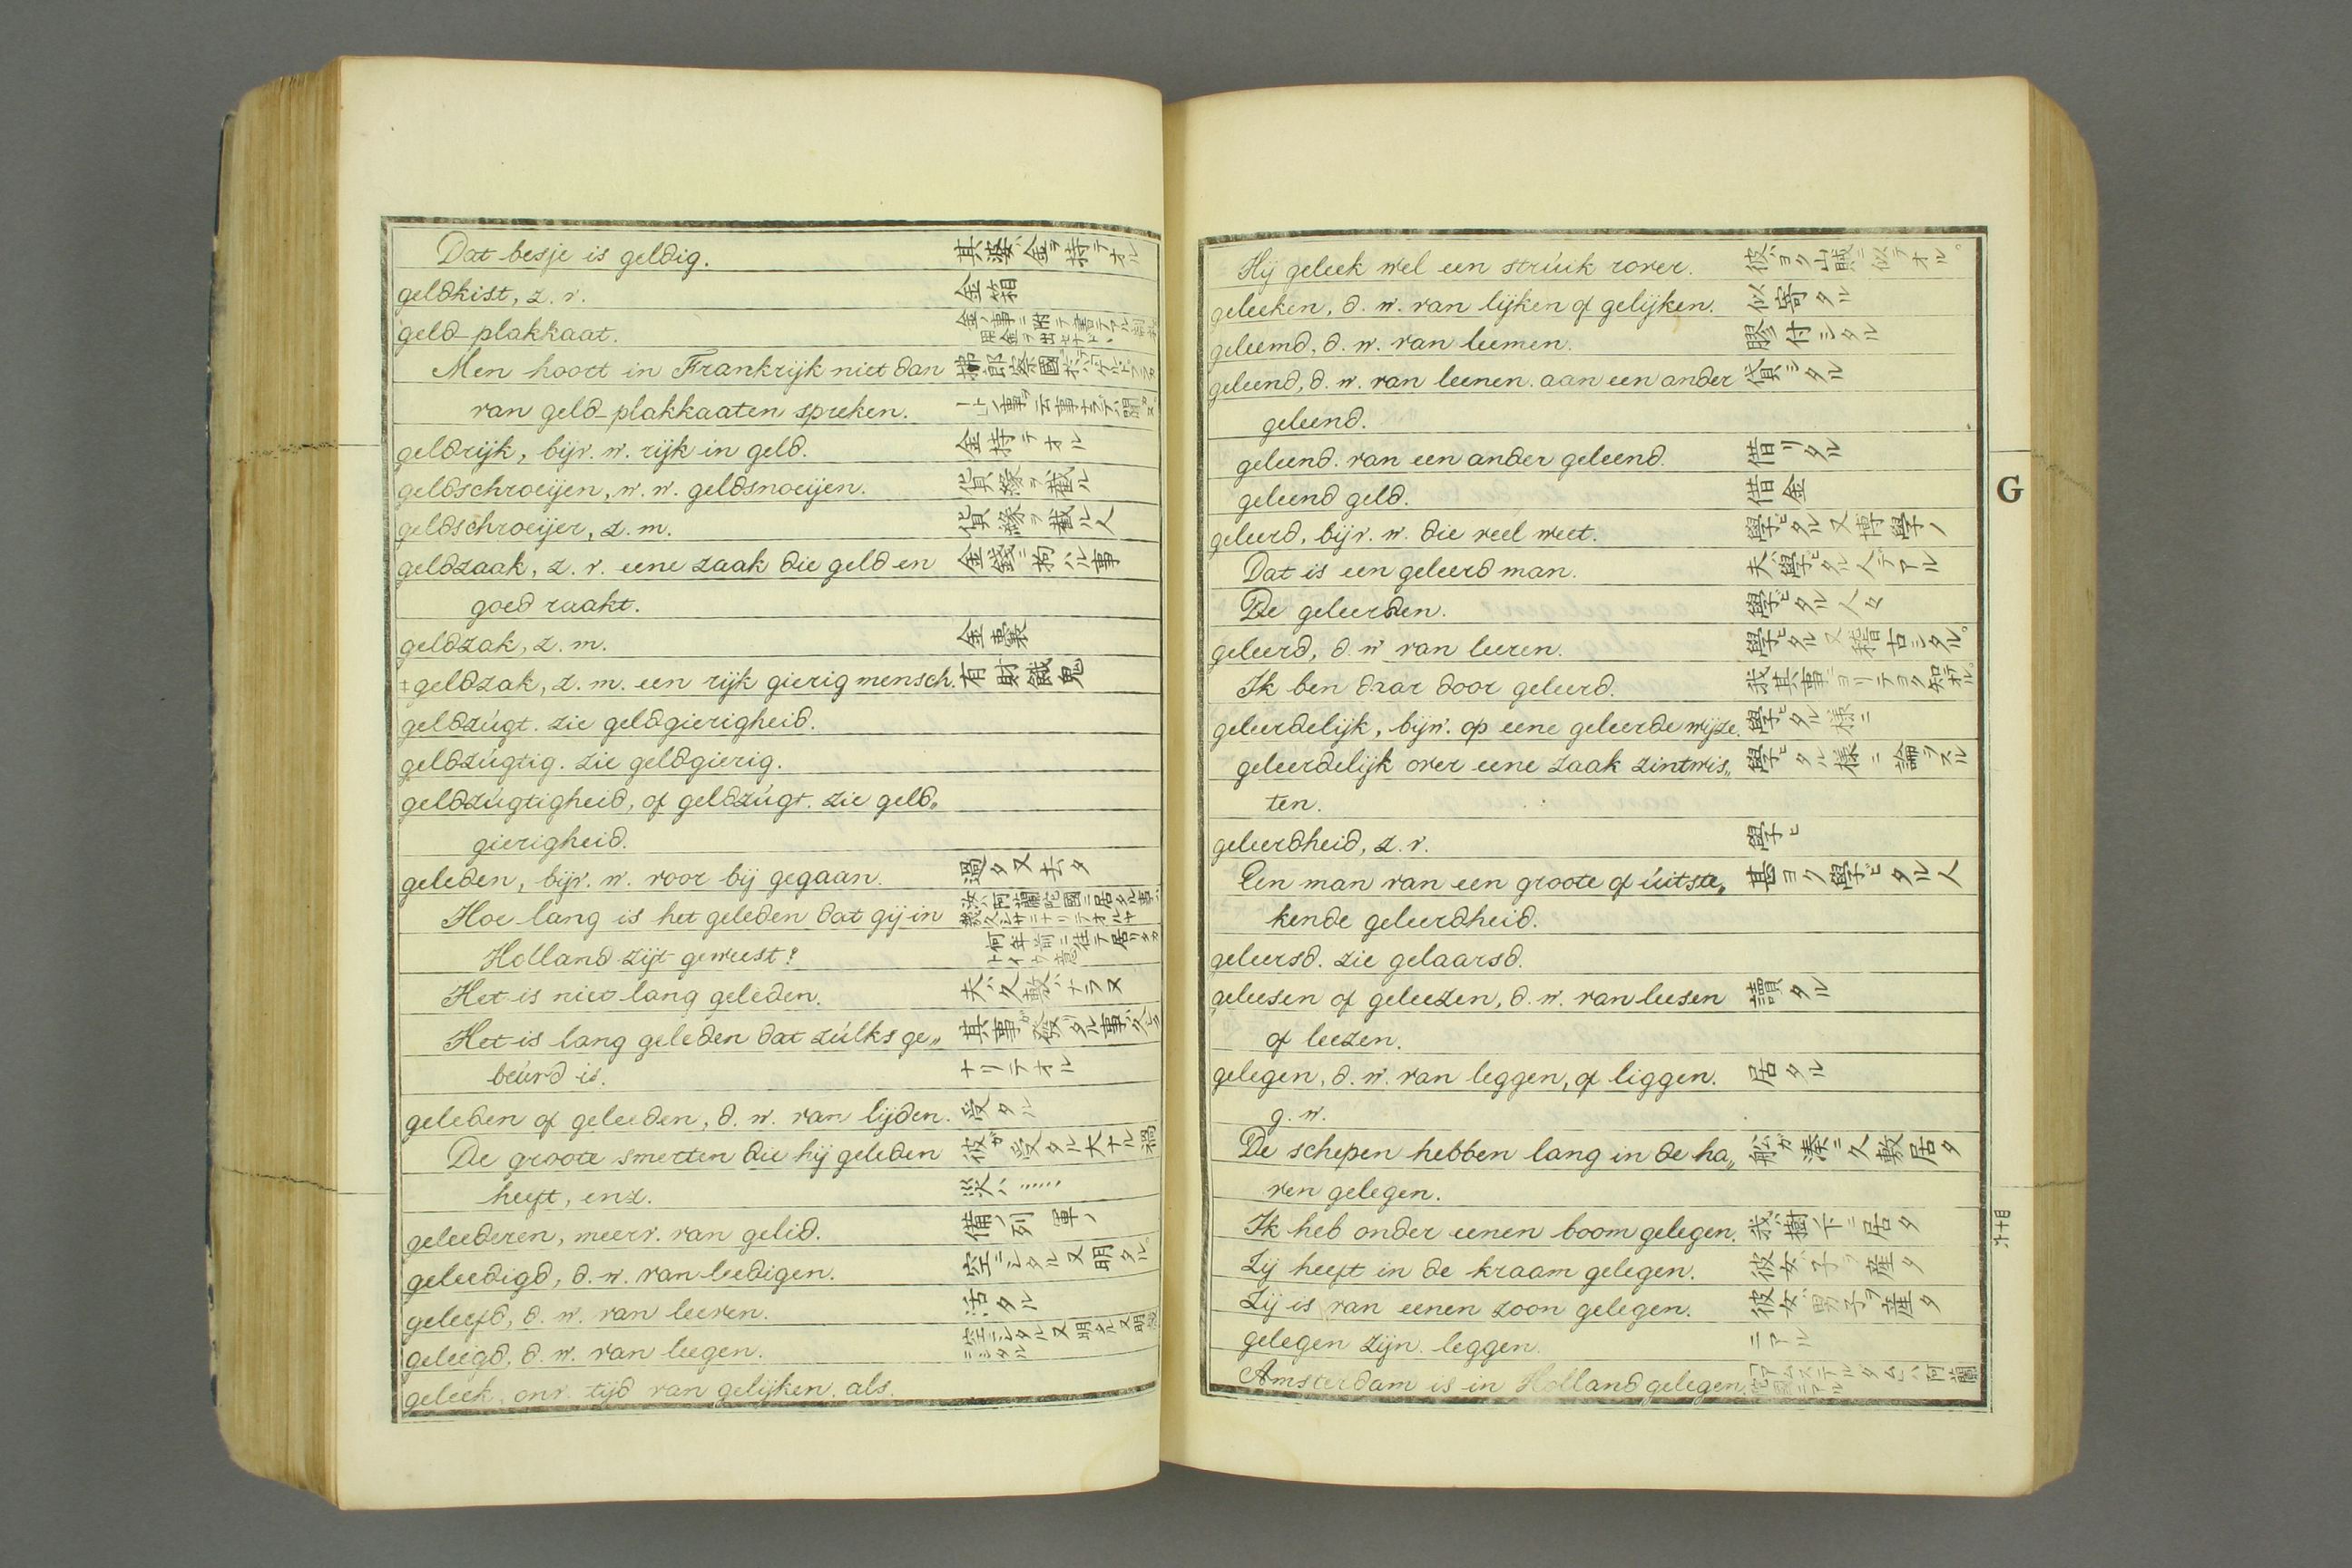 Dat besje is geldig. 其婆ハ金ヲ持テオル
geldkist, z. v. 金箱
geld-plakkaat. 金ノ事ニ附テ書テアル
用金ヲ出セナドヽ
Men hoort in Frankrijk niet dan 拂郎察國
van geld-plakkaaten spreken.
geldrijk, bijv. w. rijk in geld. 金持テオル
geldschroeijen, w. w. geldsnoeijen. 貨縁ヲ截ル
geldschroeijer, z. m. 貨縁ヲ截ル人
geldzaak, z. v. eene zaak die geld en 金錢ニ拘ハル事
goed raakt.
geldzak, z. m. 金囊
‡geldzak, z. m. een rijk gierig mensch. 有財餓鬼
geldzúgt. zie geldgierigheid.
geldzúgtig. zie geldgierig.
geldzúgtigheid, of geldzúgt. zie geld„
gierigheid.
geleden, bijv. w. voor bij gegaan. 過タ又去タ
Hoe lang is het geleden dat gij in 汝ハ阿蘭陀國ニ居タル事ハ
幾久シサニナリテオルヤ
Holland zijt geweest? 何年前ニ往テ居リタカ
トイウ意
Het is niet lang geleden. 夫ハ久敷ハナラヌ
Het is lang geleden dat zúlks ge„ 其事ガ發リタル事ハ久シク
beúrd is. ナリテオル
geleden of geleeden, d. w. van lijden. 受タル
De groote smerten die hij geleden 彼ガ受タル大ナル禍
heeft, enz. 災ハ……
geleederen, meerv. van gelid. 備ノ列 軍ノ
geleedigd, d. w. van leedigen. 空ニシタル又明タル。
geleefd, d. w. van leeven. 活タル
geleegd, d. w. van leegen. 空ニシタル又明タル又
ニシタル
geleek, onv. tijd van gelijken. als.
Hij geleek wel een strúik rover. 彼ハヨク山賊ニ似テオル。
geleeken, d. w. van lijken of gelijken. 似寄タル
geleemd, d. w. van leemen. 膠付シタル
geleend, d. w. van leenen. aan een ander 貸シタル
geleend.
geleend. van een ander geleend. 借リタル
geleend geld. 借金
geleerd, bijv. w. die veel weet. 學ビタル又博學ノ
Dat is een geleerd man. 夫ハ學ビタル人デアル
De geleerden. 學ビタル人々
geleerd, d. w. van leeren. 學ビタル又稽古シタル。
Ik ben daar door geleerd. 我其事ニヨリテヨク知テオル。
geleerdelijk, bijw. op eene geleerde wijze. 學ビタル様ニ
geleerdelijk over eene zaak zintwis„ 學ビタル樣ニ論ヲスル
ten.
geleerdheid, z. v. 學ヒ
Een man van een groote of úitste„ 甚ヨク學ビタル人
kende geleerdheid.
geleersd. zie gelaarsd.
geleesen of geleezen, d. w. van leesen 讀タル
of leezen.
gelegen, d. w. van leggen, of liggen. 居タル
g. w.
De schepen hebben lang in de ha„ 舩ガ湊ニ久敷居タ
ven gelegen.
Ik heb onder eenen boom gelegen. 我ハ樹ノ下ニ居タ
Zij heeft in de kraam gelegen. 彼女ハ子ヲ産タ
Zij is van eenen zoon gelegen. 彼女ハ男子ヲ産タ
gelegen zijn. leggen. ニアル
Amsterdam is in Holland gelegen. 「アムステルダムハ阿蘭
陀國ニアル
G